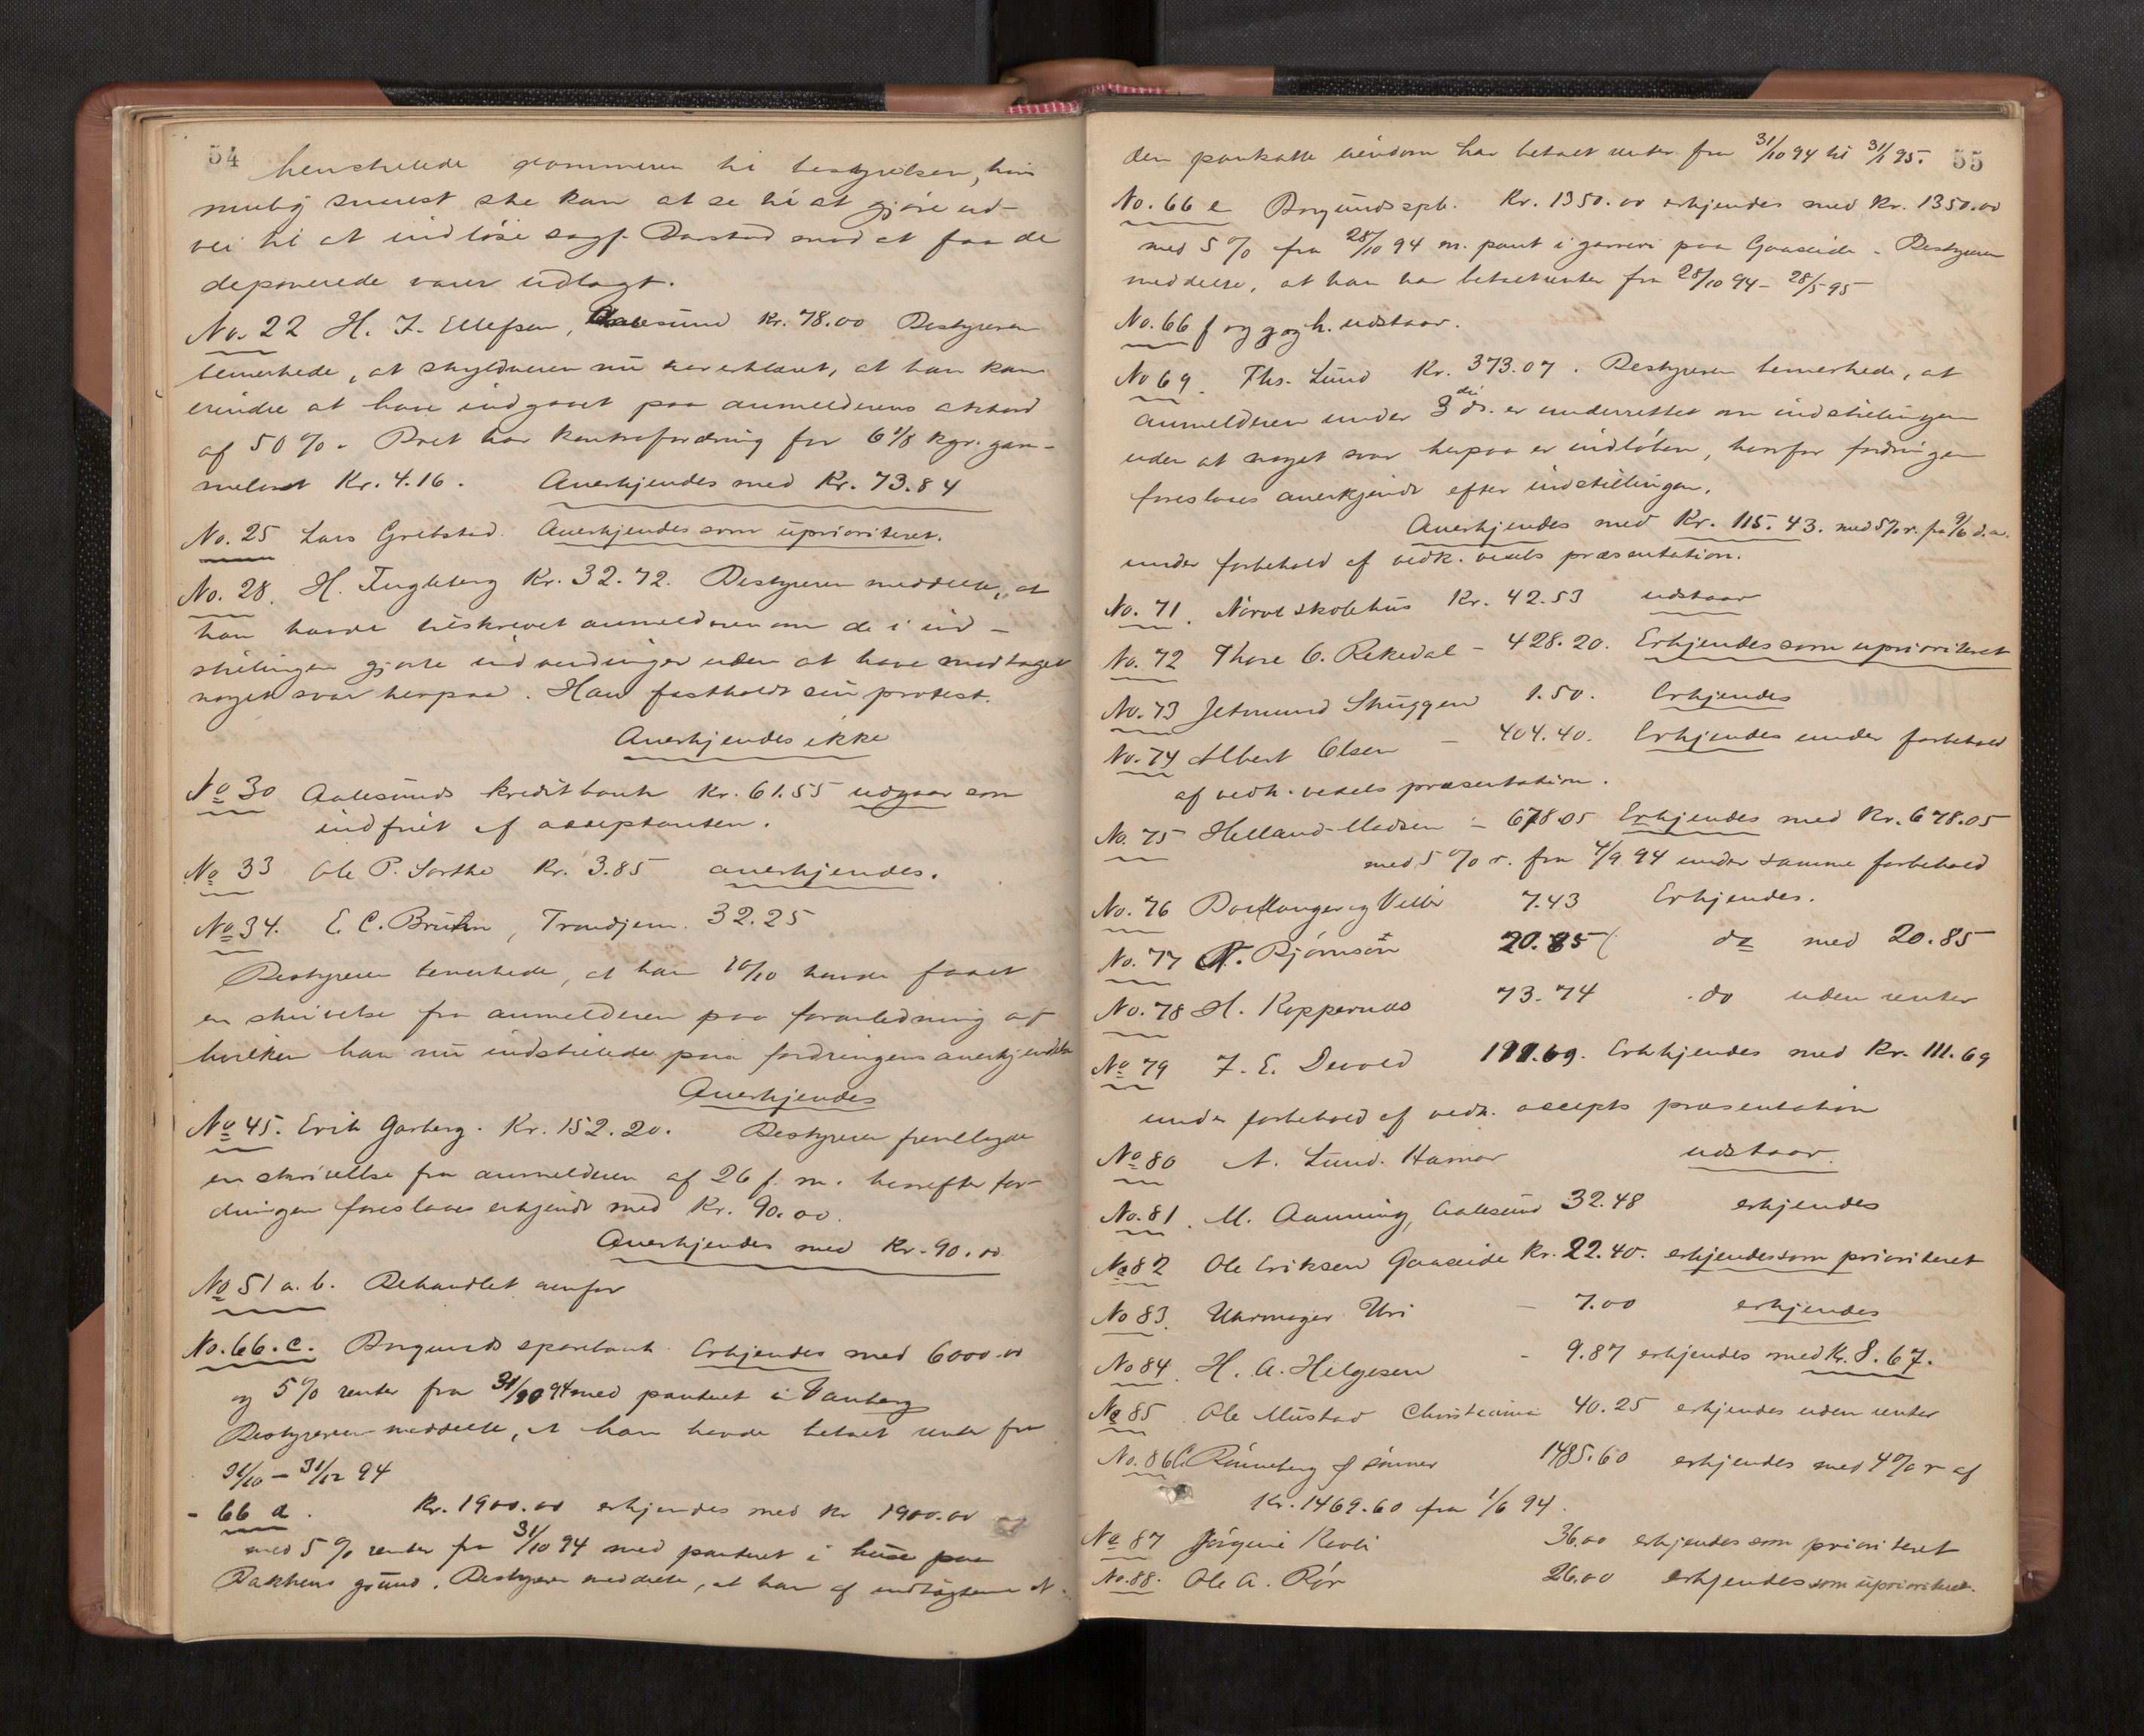 54
henstillede dommeren til bestyrelsen, hvis
mulig snarest ske kan at se til at gjøre ud-
vei til at indløse sagf. Barstad mod at faa de
deponerede varer udlagt.
No. 22 H. J. Ellefsen, Aalesund Kr. 78.00 Bestyreren
bemerkede, at skyldneren nu har erklæret, at han kan
erindre at have indgaaet paa anmelderens akkord
af 50 %. Boet har kontrafordring for 6 1/8 kgr. gam-
melost Kr. 4.16. Anerkjendes med Kr. 73.84
No. 25 Lars Grebstad. Anerkjendes som uprioriteret.
No. 28. H. Fugleberg Kr. 32.72. Bestyreren meddelte, at
han havde tilskrevet anmelderen om de i ind-
stillingen gjorte indvendinger uden at have modtaget
noget svar herpaa. Han fastholdt sin protest.
Anerkjendes ikke
No 30 Aalesunds kreditbank Kr. 61.55 udgaar som
indfriet af acceptanten.
No 33 Ole P. Sorthe Kr. 3.85 anerkjendes.
No 34. E. C. Bruhn, Trondjem. 32.25
Bestyreren bemerkede, at han 10/10 havde faaet
en skrivelse fra anmelderen paa foranledning af
hvilken han nu indstillede paa fordringens anerkjendelse
Anerkjendes
No 45. Erik Garberg. Kr. 152.20. Bestyreren fremlagde
en skrivelse fra anmelderen af 26 f. m. hvorefter for-
dringen foreslaaes erkjendt med Kr. 90.00.
Anerkjendes med Kr. 90.00
No 51 a. b. Behandlet ovenfor
No. 66. c. Borgunds sparebank. Erkjendes med 6000.00
og 5 % renter fra 31/10 94 med panteret i Vanberg
Bestyreren meddelte, at han havde betalt renter fra
31/10 – 31/12 94
- 66 d. Kr. 1900.00 erkjendes med Kr 1900.00
med 5 % renter fra 31/10 94 med panteret i huse paa
Bakkens grund. Bestyreren meddelte, at han af indtægterne af
55
den pantsatte eiendom har betalt renter fra 31/10 94 til 31/1 95.
No. 66 e Borgunds spb. Kr. 1350.00 erkjendes med Kr. 1350.00
med 5 % fra 28/10 94 m. pant i garveri paa Gaaseide. Bestyreren
meddelte, at han har betalt renter fra 28/10 94 – 28/5 95
No. 66 f og g og h. udstaar.
No 69. Ths. Lund Kr. 373.07. Bestyreren bemerkede, at
anmelderen under 3die ds. er underrettet om indstillingen
uden at noget svar herpaa er indløben, hvorfor fordringen
foreslaaes anerkjendt efter indstillingen.
Anerkjendes med Kr. 115.43. med 5% r. fra 9/6 d. a.
under forbehold af vedk. vexels præsentation.
No. 71. Nørve skolehus Kr. 42.53 udstaar
No. 72 Thore O. Rekedal - 428.20. Erkjendes som uprioriteret
No. 73 Jetmund Skuggen 1.50. Erkjendes
No. 74 Albert Olsen - 404.40. Erkjendes under forbehold
af vedk. vexels præsentation.
No. 75 Helland-Madsen - 678.05 Erkjendes med Kr. 678.05
med 5 % r. fra 4/9 94 under samme forbehold
No. 76 7.43 Erkjendes.
No. 77 N. Bjørnson 20.85 do med 20.85
No. 78 H. Koppernæs 73.74 do uden renter
No 79 F. E. Devold 111.69. Erkjendes med Kr. 111.69
under forbehold af vedk. accepts præsentation
No 80 A. Lund. Hamar udstaar.
No. 81. M. Aanning, Aalesund 32.48 erkjendes
No 82 Ole Eriksen Gaaseide Kr. 22.40. erkjendes som prioriteret
No 83. Uhrmager Uri - 7.00 erkjendes
No 84. H. A. Helgesen - 9.87 erkjendes med Kr. 8.67.
No 85 Ole Mustad Christiania 40.25 erkjendes uden renter
No. 86 C. Rønneberg & sønner 1485.60 erkjendes med 4 % r af
Kr. 1469.60 fra 1/6 94.
No 87 Jørgine 36.00 erkjendes som prioriteret
No. 88. Ole A. Rør 26.00 erkjendes som uprioriteret.